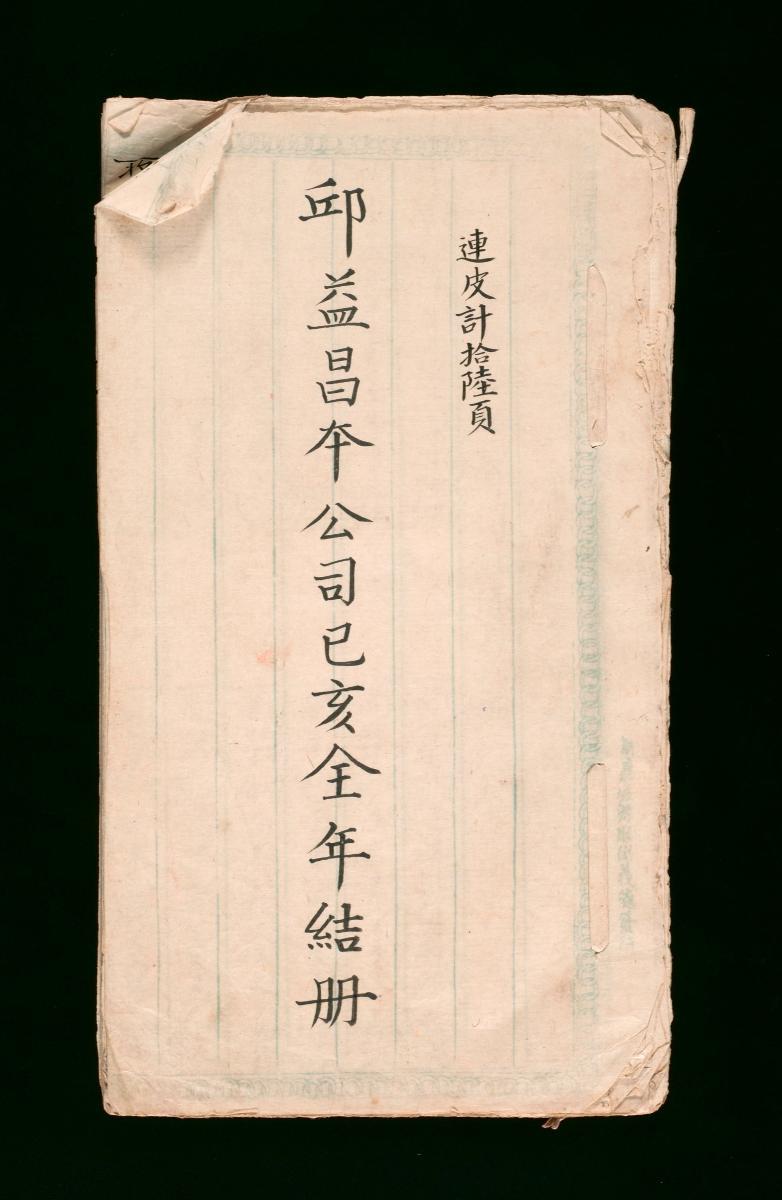 連皮計拾陸頁
邱益昌夲公司已亥全年結册